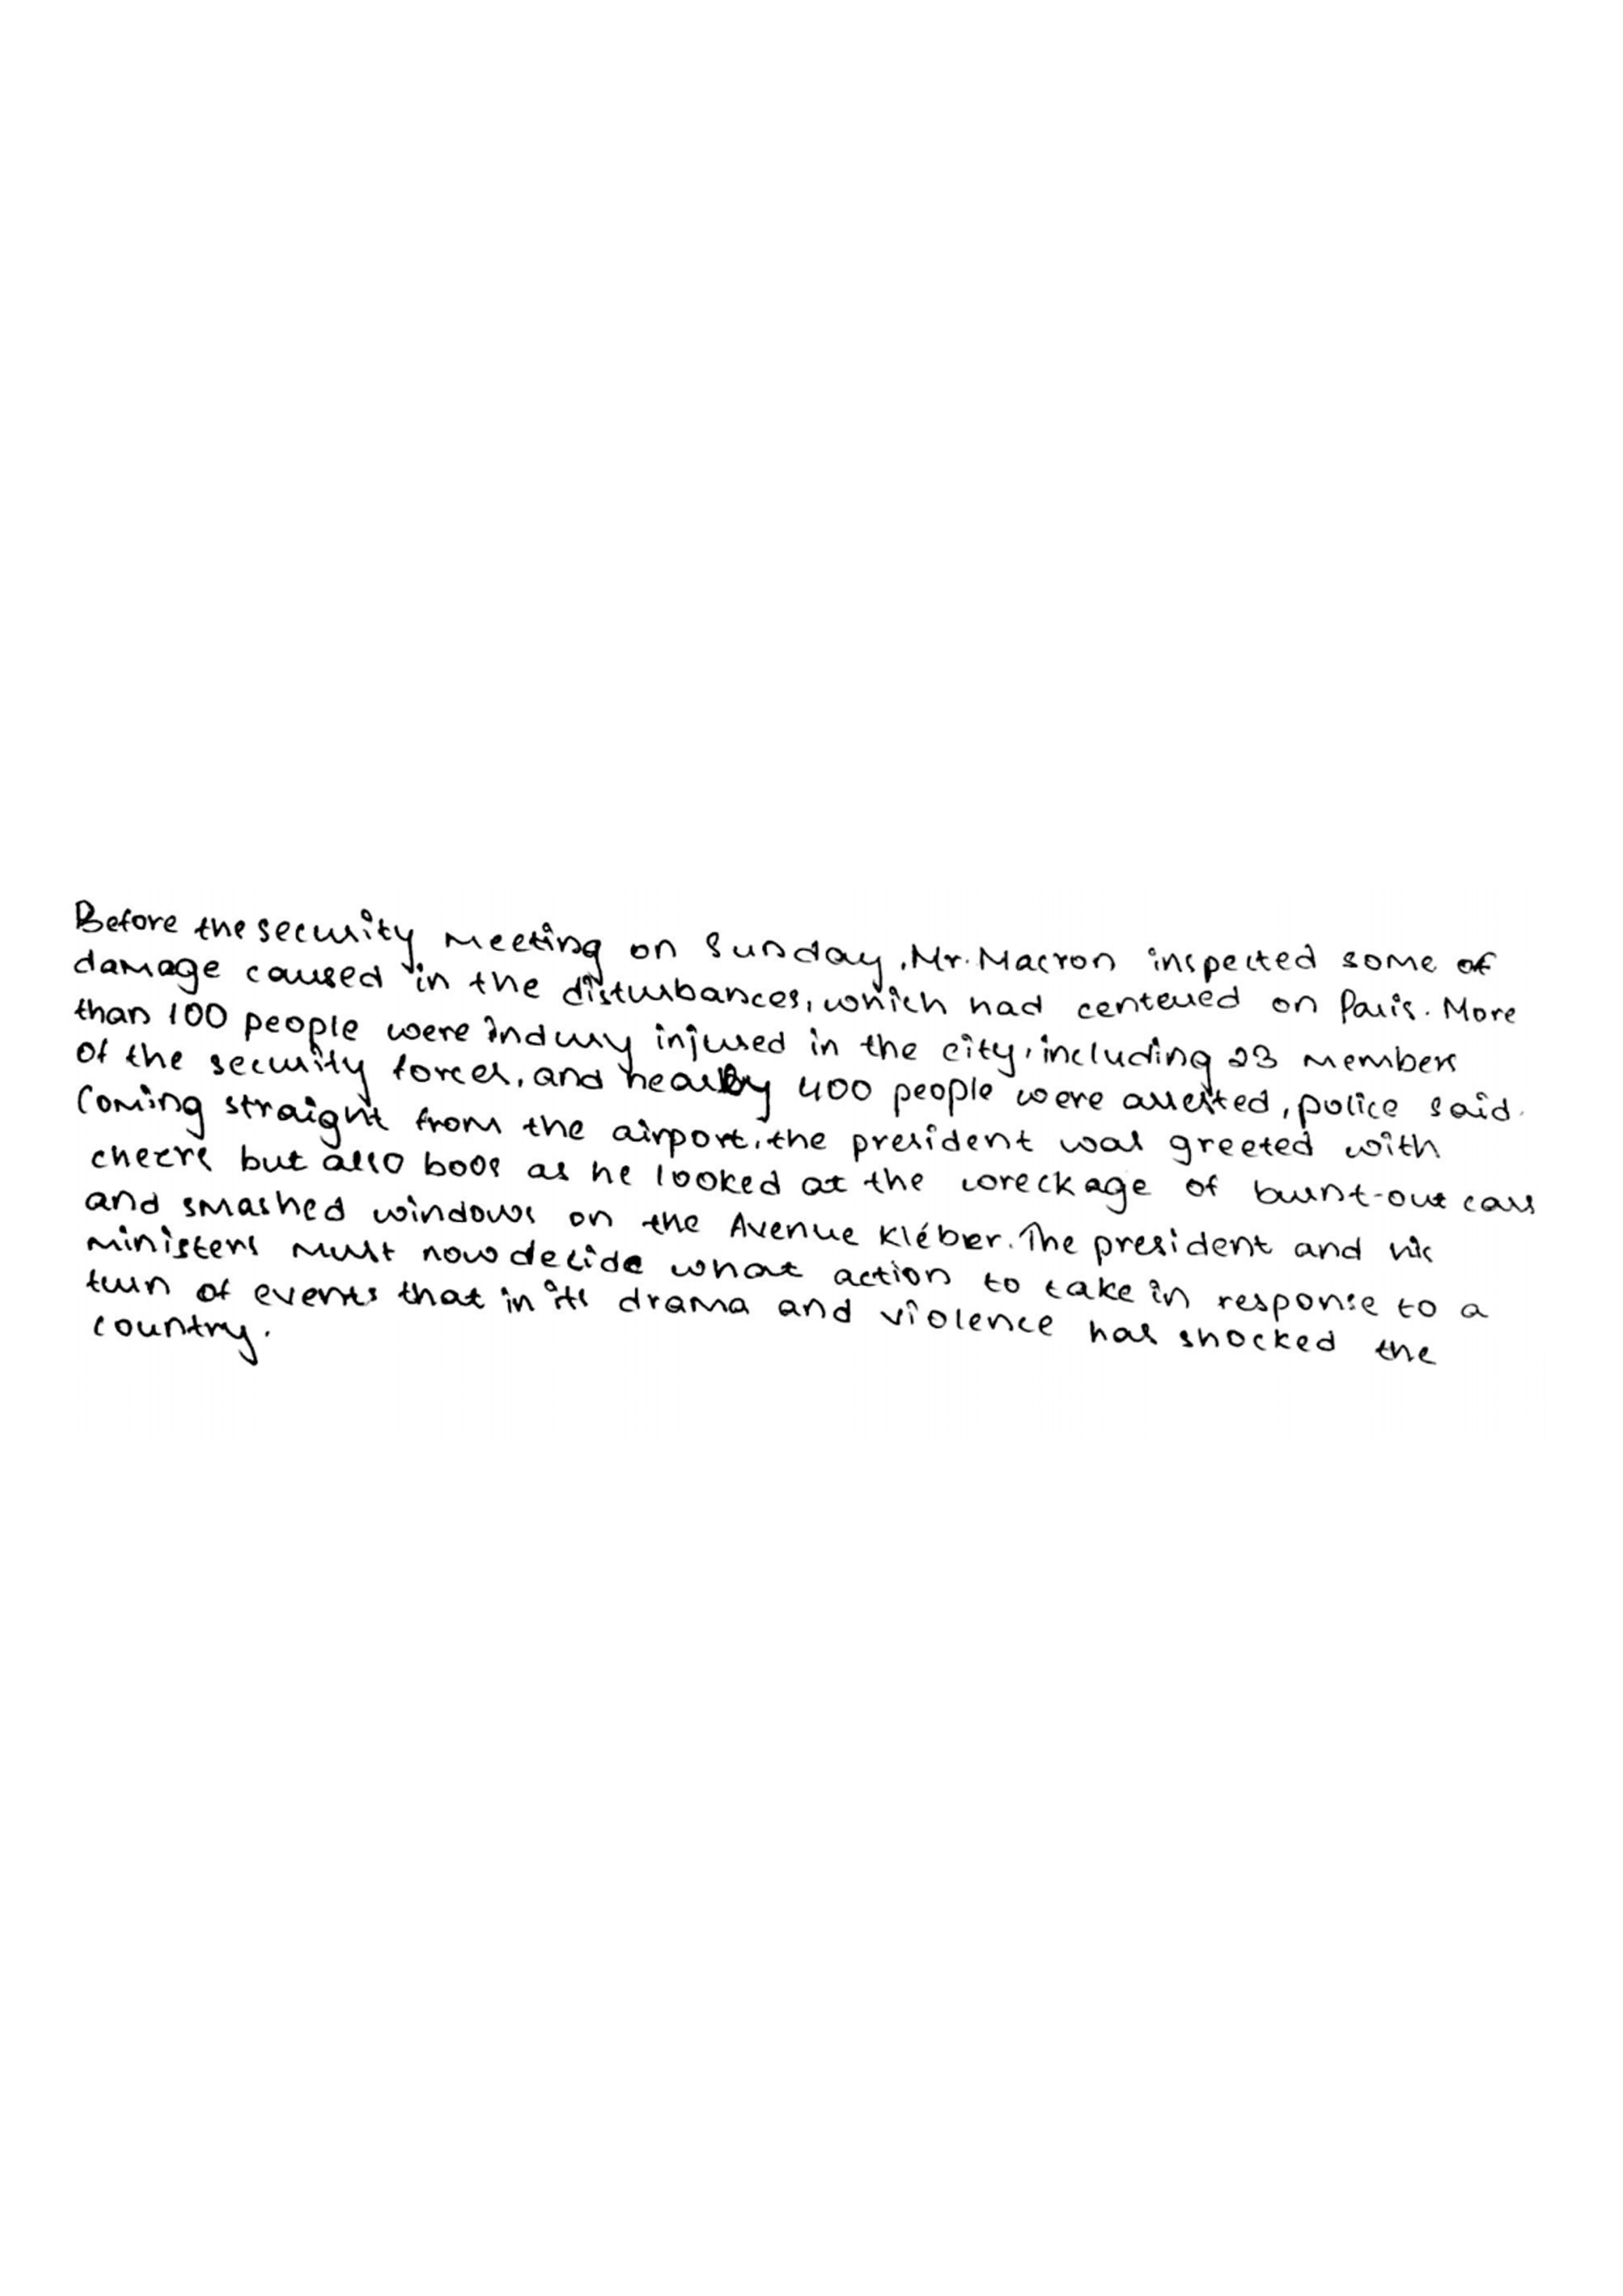 Before the security meeting on Sunday, Mr. Macron inspected some of
damage caused in the disturbances, which had centered on Paris. More
than 100 people were indury injured in the city, including 23 members
of the security forces, and nearby 400 people were arrested, police said.
Coming straight from the airport, the president was greeted with
cheers but also boos as he looked at the wreckage of burnt-out cars
and smashed windows on the Avenue Kléber. The president and his
ministers must now decide what action to take in response to a
turn of events that in its drama and violence has shocked the
country.